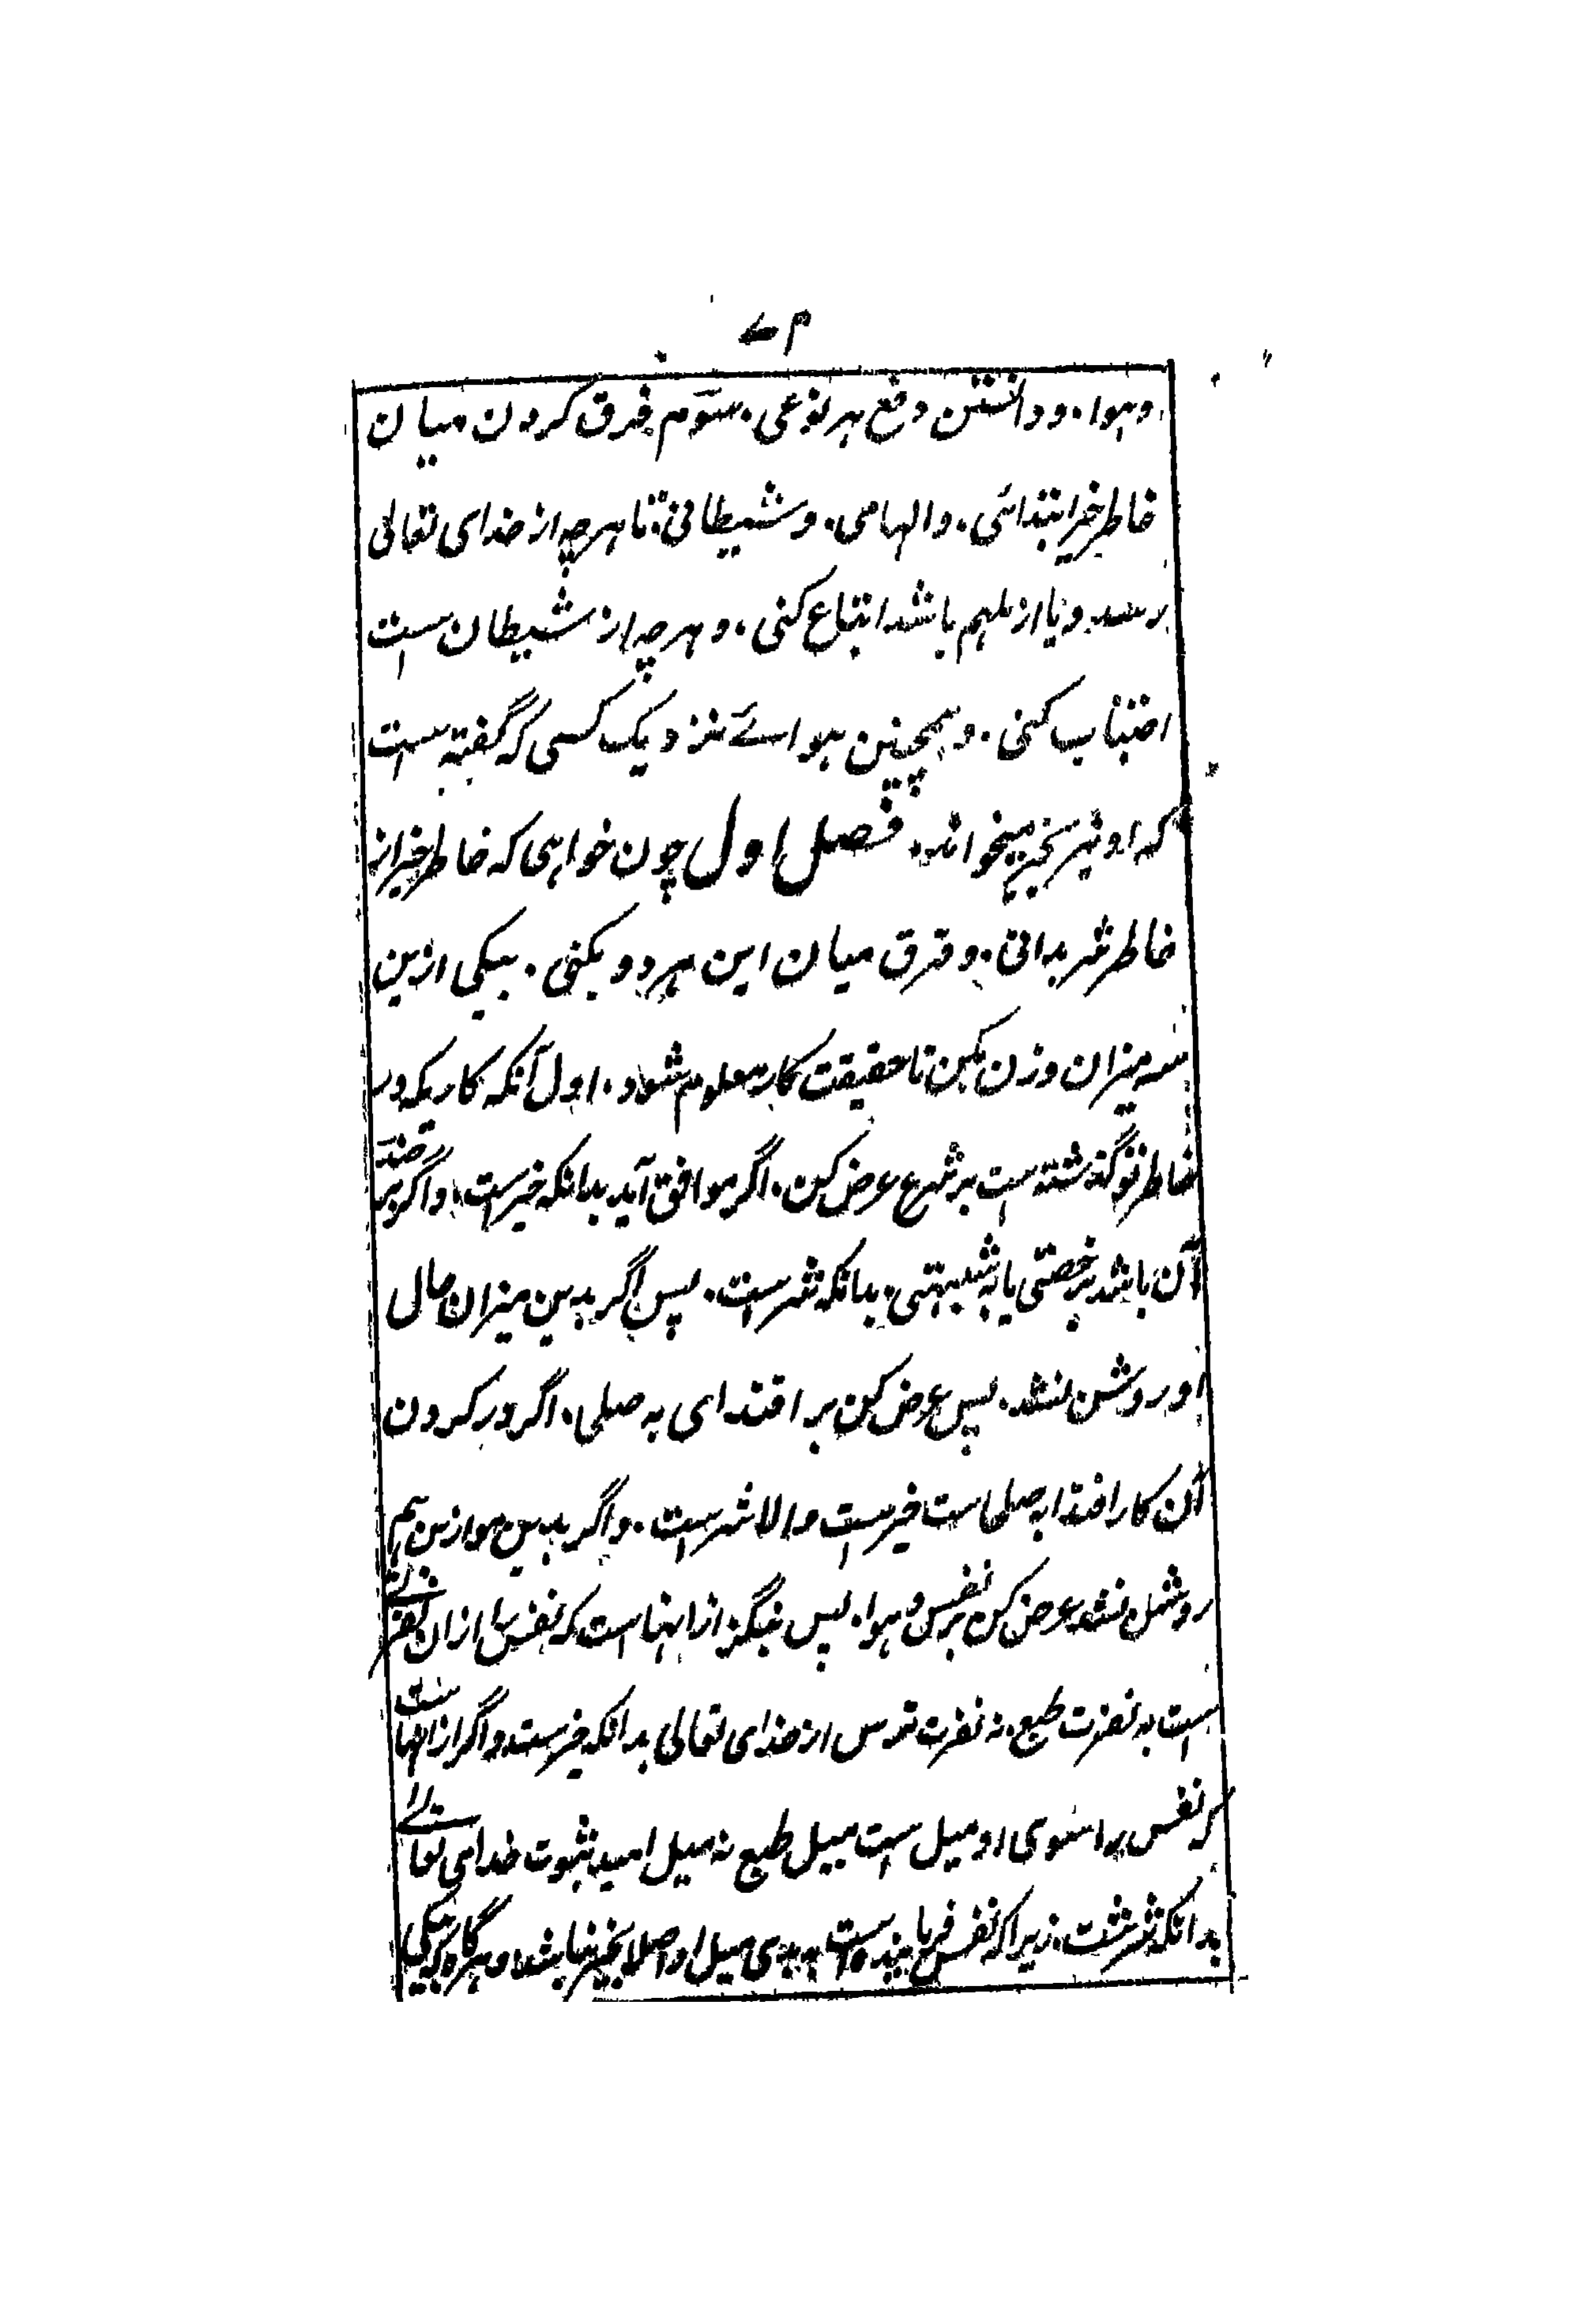 ۷۳
وہوا. و دانستن دفع ہر نوعی. سوّم فرق کردن میان
خاطر خیر ابتدائی. و الہامی. و شیطانی. تا ہرچہ از خدای تعالی
رسد و یا از ملہم باشد اتباع کنی. و ہرچہ از شیطان ست
اجتناب کنی. و ہمچنین ہوائے نزدیک کسی کہ گفتہ ست
کہ او نیز بخیر میخواند. فصل اول چون خواہی کہ خاطر خیر از
خاطر شر بدانی. و فرق میان این ہر دو بکنی. بیکی ازین
سہ میزان وزن بکن تا حقیقت کار معلوم شود. اول آنکہ کاریکہ در
خاطر تو گذشتہ است بر شرع عرض کن. اگر موافق آید بدانکہ خیرست. و اگر بر ضد
آن باشد برخصتی یا بہ شبہتی. بدانکہ شرست. پس اگر بدین میزان حال
او روشن نشد. پس عرض کن بر اقتدای بہ صلحا. اگر در کردن
آن کار اقتدا بہ صلحاست خیرست و الا شرست. و اگر بدین موازین ہم
روشن نشد عرض کن بر نفس و ہوا. پس بنگر از انہا است کہ نفس را ازان نفرتے
است بہ نفرت طبع. نہ نفرت ترس از خدای تعالی بدانکہ خیرست و اگر از انہاست
کہ نفس را سوی او میل است میل طبع نہ میل امید بثوت خدای تعالے
بدانکہ شرست. زیرا کہ نفس فرمایندہ است بہ بدی میل او اصلا بخیر نباشد و ہرگاہ کہ بیکی